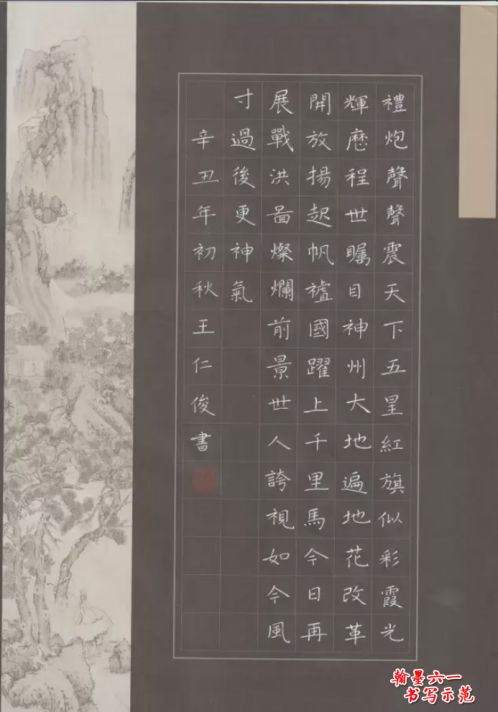 禮炮聲聲震天下五星紅旗似彩霞光
輝歷程世矚目神州大地遍地花改革
開放揚起帆禠國躍上千里馬今日再
展戰洪啚燦爛前景世人誇視如今風
寸過後更神氣
辛丑年初秋王仁俊書
翰墨六一
书写示范